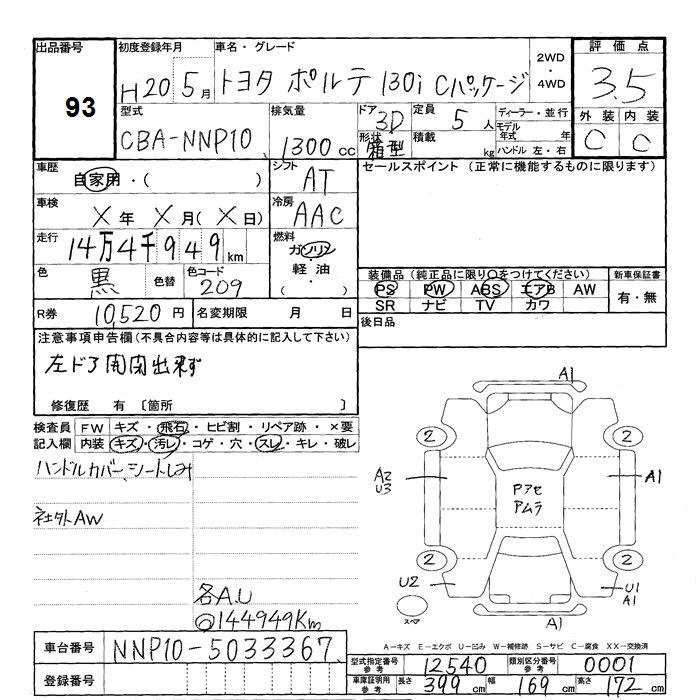 出品番号 初度登録年月 車名・グレード 2WD・4WD 評価点
93 H20 5月 トヨタ ポルテ 130i Cパッケージ 3.5
型式 排気量 ドア 3D 定員 5人 ディーラー・並行 外装 内装
CBA-NNP10 1300cc 形状 箱型 積載 kg モデル年式 年 ハンドル 左・右 C C
車歴 自家用・( ) シフト AT セールスポイント (正常に機能するものに限ります)
車検 X年 X月(X日) 冷房 AAC
走行 14万4千949km 燃料 ガソリン・軽油・( )
色 黒 色替 色コード 209 装備品(純正品に限り○をつけてください) 新車保証書
PS PW ABS エアB AW 有・無
SR ナビ TV カワ
R券 10,520円 名変期限 月 日 後日品
注意事項申告欄(不具合内容等は具体的に記入して下さい)
左ドア開閉出来ず
修復歴 有 〔箇所 〕
検査員 FW キズ・飛石・ヒビ割・リペア跡・×要
記入欄 内装 キズ・汚レ・コゲ・穴・スレ・キレ・破レ
ハンドルカバー、シートしみ
社外AW
各A.U
◎144949Km
A1
2 2
A2
U3
A1
Pアセ
アムラ
2 2
U2
U1
A1
スペア
A1
A-キズ E-エクボ U-凹み W-補修跡 S-サビ C-腐食 XX-交換済
車台番号 NNP10-5033367
登録番号
型式指定番号 参考 12540 類別区分番号 参考 0001
車庫証明用 参考 長さ 399cm 幅 169cm 高さ 172cm